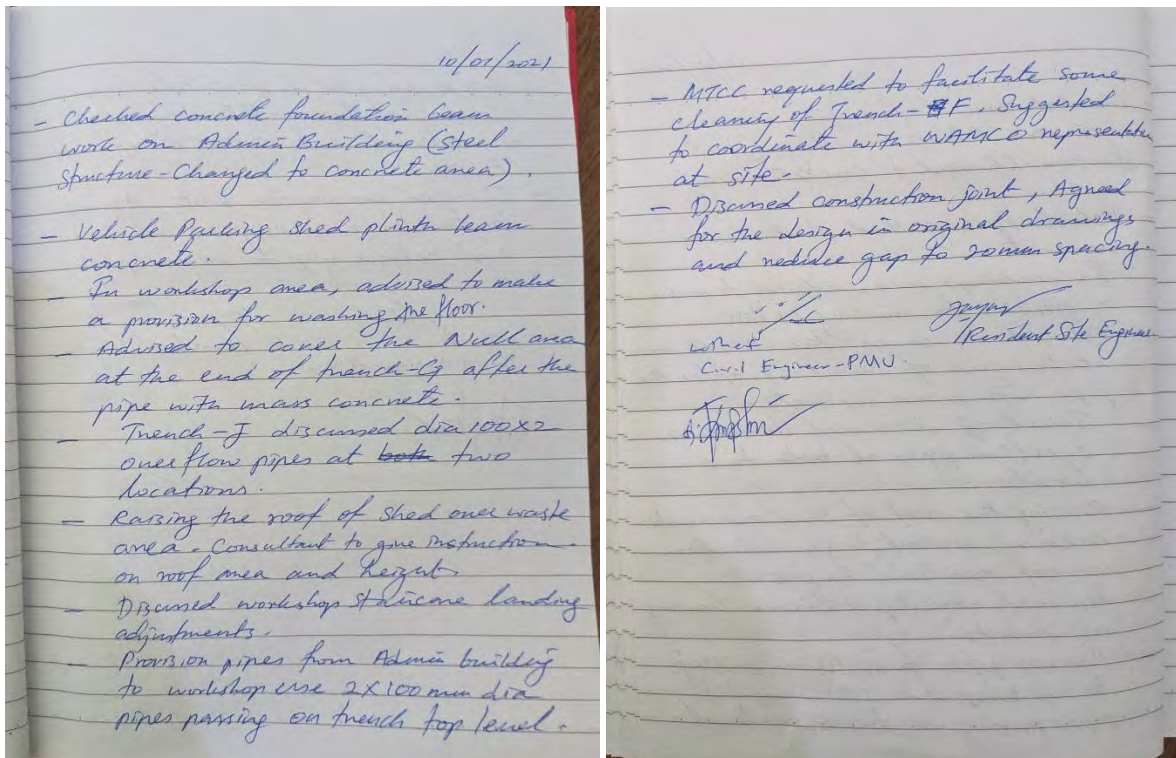 10/01/2021
- Checked concrete foundation beam
work on Admin Building (Steel
Structure - Changed to concrete area).
- Vehicle Parking shed plinth beam
concrete.
- In workshop area, advised to make
a provision for washing the floor.
- Advised to cover the Null area
at the end of trench-G after the
pipe with mass concrete.
- Trench-J discussed dia 100x2
overflow pipes at two
locations.
- Raising the roof of shed over waste
area. Consultant to give instruction
on roof area and height.
- Discussed workshop staircase landing
adjustments.
- Provision pipes from Admin building
to workshop use 2X100mm dia
pipes passing on trench top level.
- MTCC requested to facilitate some
cleaning of Trench-F. Suggested
to coordinate with WAMCO representative
at site.
- Discussed construction joint, Agreed
for the design in original drawings
and reduce gap to 20mm spacing.
Resident Site Engineer
Civil Engineer-PMU.